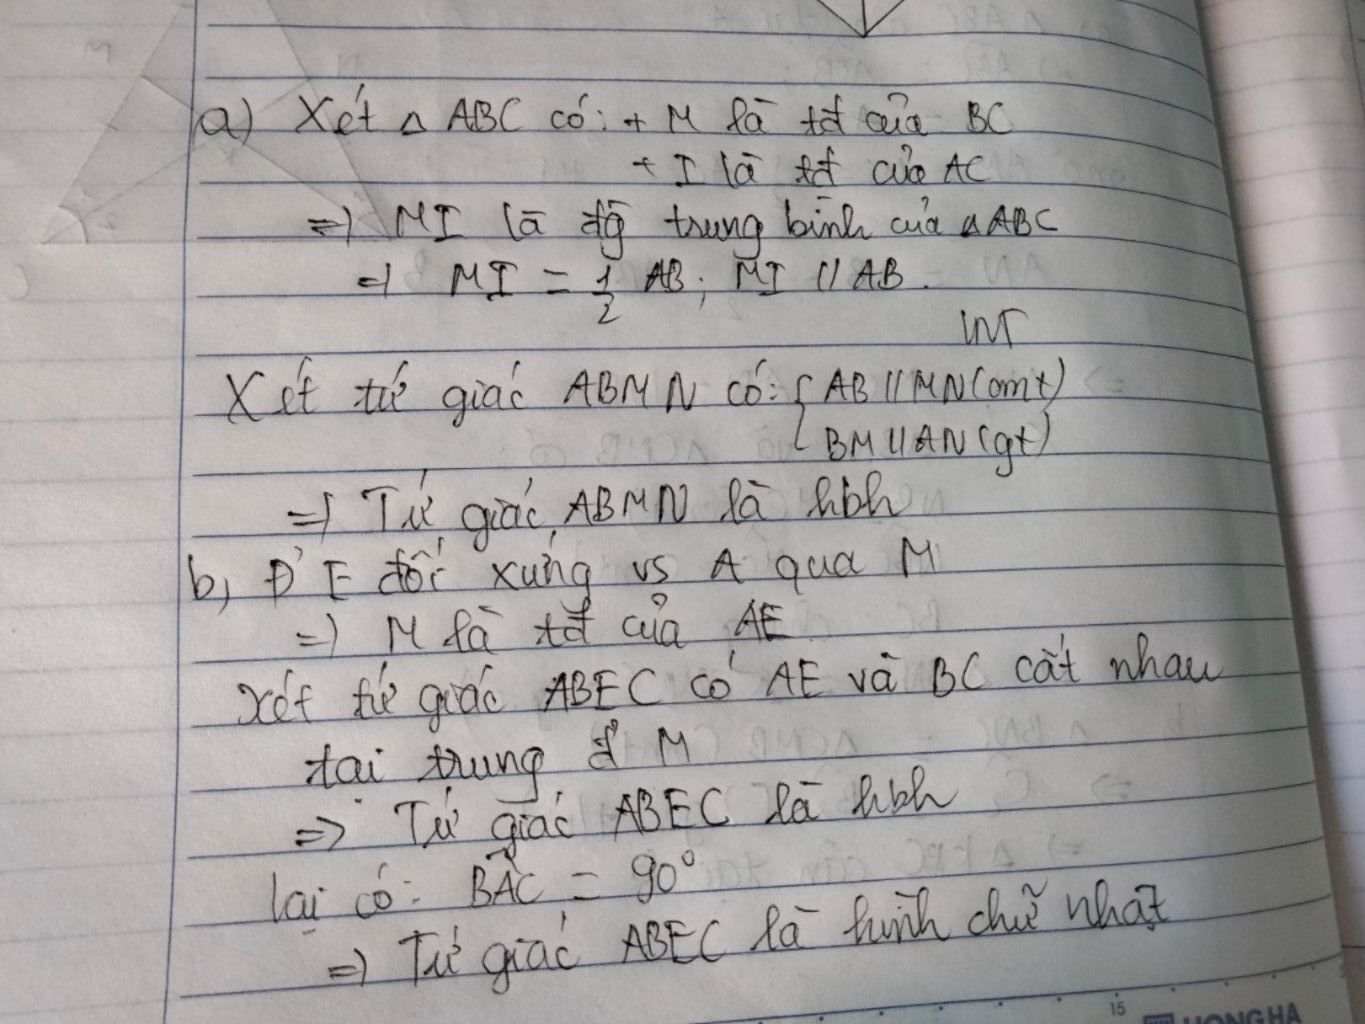 a) Xét Δ ABC có: + M là tđ của BC
+ I là tđ của AC
=> MI là đg trung bình của Δ ABC
=> MI = 1/2 AB; MI // AB.
Xét tứ giác ABMN có: { AB // MN (cmt)
BM // AN (gt)
=> Tứ giác ABMN là hbh
b, Đ' E đối xứng vs A qua M
=> M là tđ của AE
Xét tứ giác ABEC có AE và BC cắt nhau
tại trung đ' M
=> Tứ giác ABEC là hbh
lại có: BÂC = 90°
=> Tứ giác ABEC là hình chữ nhật
15
HONG HA